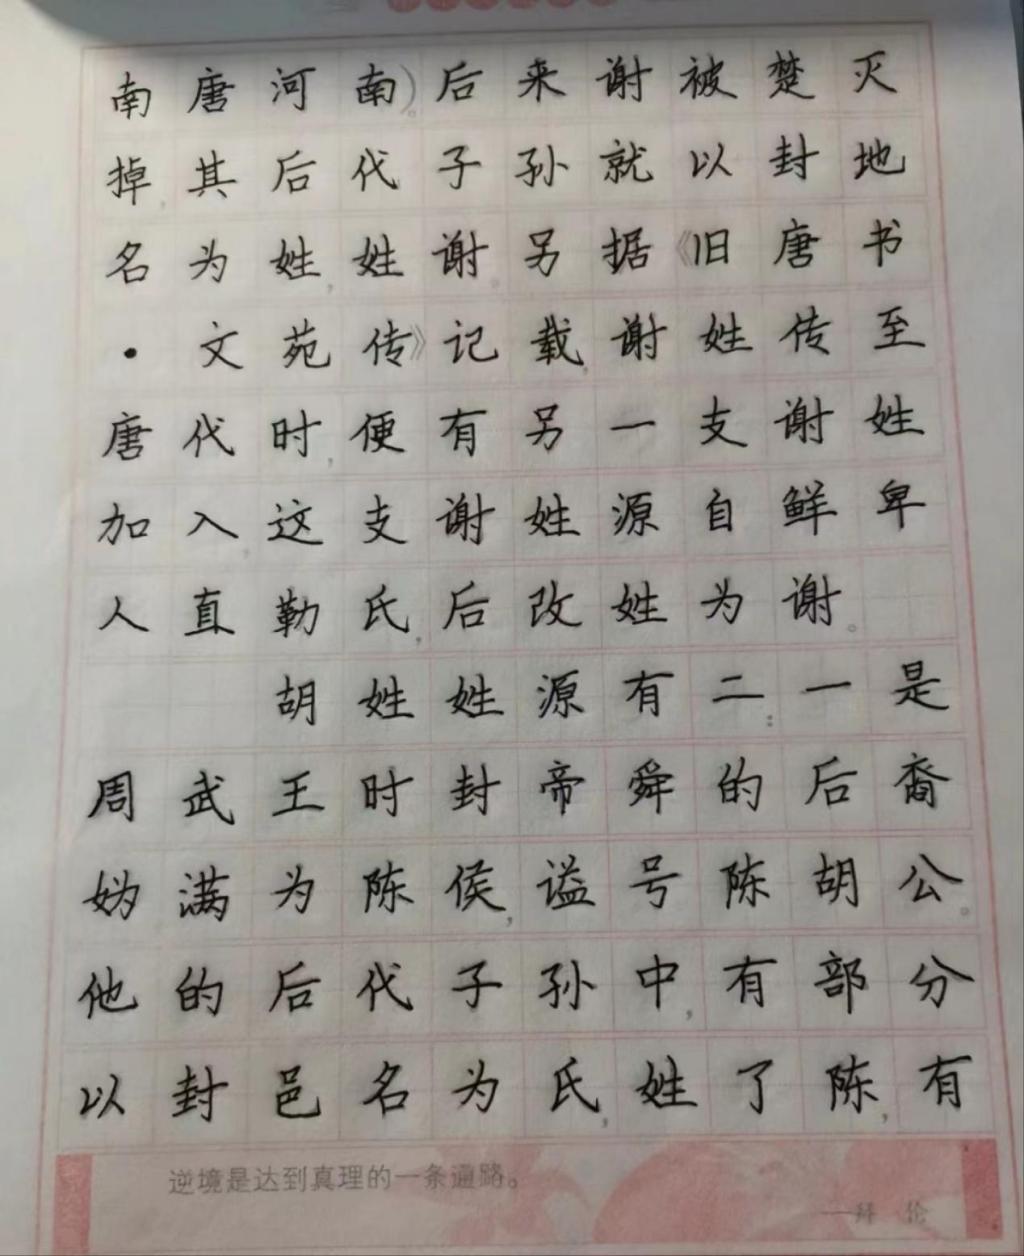 南唐河南)。后来谢被楚灭
掉,其后代子孙就以封地
名为姓,姓谢。另据《旧唐书
·文苑传》记载,谢姓传至
唐代时,便有另一支谢姓
加入,这支谢姓源自鲜卑
人直勒氏,后改姓为谢。
胡姓姓源有二:一是
周武王时封帝舜的后裔
妫满为陈侯,谥号陈胡公。
他的后代子孙中,有部分
以封邑名为氏,姓了陈,有
逆境是达到真理的一条通路。
——拜 伦